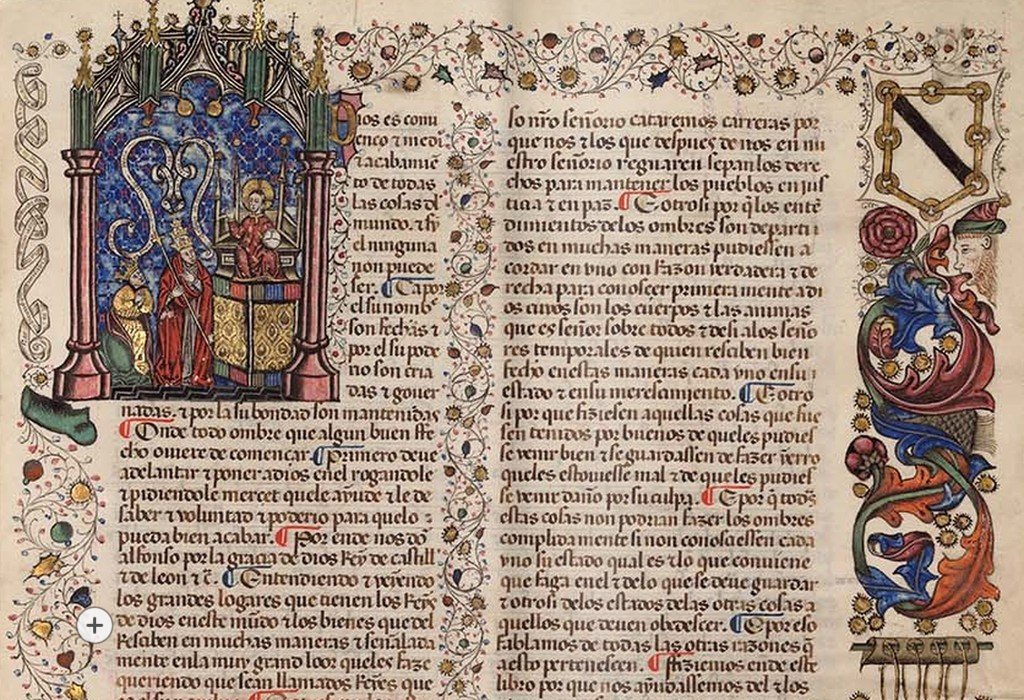 Dios es comi
enço ⁊ medi
⁊ acabamiẽ
to de todas
las cosas dl
mundo. ⁊ sy
el ninguna
non puede
ser. Ca por
el su nombᵉ
son fechas ⁊
por el su pode
no son cria
das ⁊ gouer
nadas. ⁊ por la su bondad son mantenidas
Onde todo ombre que algun buen fe
cho ouiere de començar. Primero deue
adelantar ⁊ poner a dios en el rogandole
⁊ pidiendole mercet quele ayude ⁊ le de
saber ⁊ voluntad ⁊ poderio para quelo
pueda bien acabar. Por ende nos dõ
alfonso por la gracia de dios Rey de castill
⁊ de leon ⁊ c̃. Entendiendo ⁊ veyendo
los grandes logares que tienen los Reys
de dios eneste mũdo ⁊ los bienes que del
Resciben en muchas maneras ⁊ señalada
mente enla muy grand loor queles faze
queriendo que sean llamados Reyes que
so nr̃o señorio cataremos carreras por
que nos ⁊ los que despues de nos en nu
estro señorio regnaren sepan los dere
chos para mantener los pueblos en jus
ticia ⁊ en paz. E otrosi por q̃ los entẽ
dimientos delos ombres son departi
dos en muchas maneras pudiessen a
cordar en vno con Razon verdadera ⁊ de
recha para conoscer primera mente a di
os cuyos son los cuerpos ⁊ las animas
que es señor sobre todos ⁊ desi alos seño
res temporales de quien resciben bien
fecho en estas maneras cada vno en su
estado ⁊ en su merescimiento. E otro
si por que fiziesen aquellas cosas que fue
sen tenidos por buenos de queles pudies
se venir bien ⁊ se guardassen de fazer yerro
queles estouiesse mal ⁊ de que les pudies
se venir daño por su culpa. E por q̃ todas
estas cosas non podrian fazer los ombres
complida mente si non conosciessen cada
vno su estado qual es ⁊ lo que conviene
que faga en el ⁊ delo que se deue guardar
⁊ otrosi delos estados delas otras cosas a
quellos que deuen obedescer. E por eso
fablamos de todas las otras razones q̃
a esto pertenescen. ⁊ fiziemos ende este
libro por que nos ayudassemos del ⁊ los